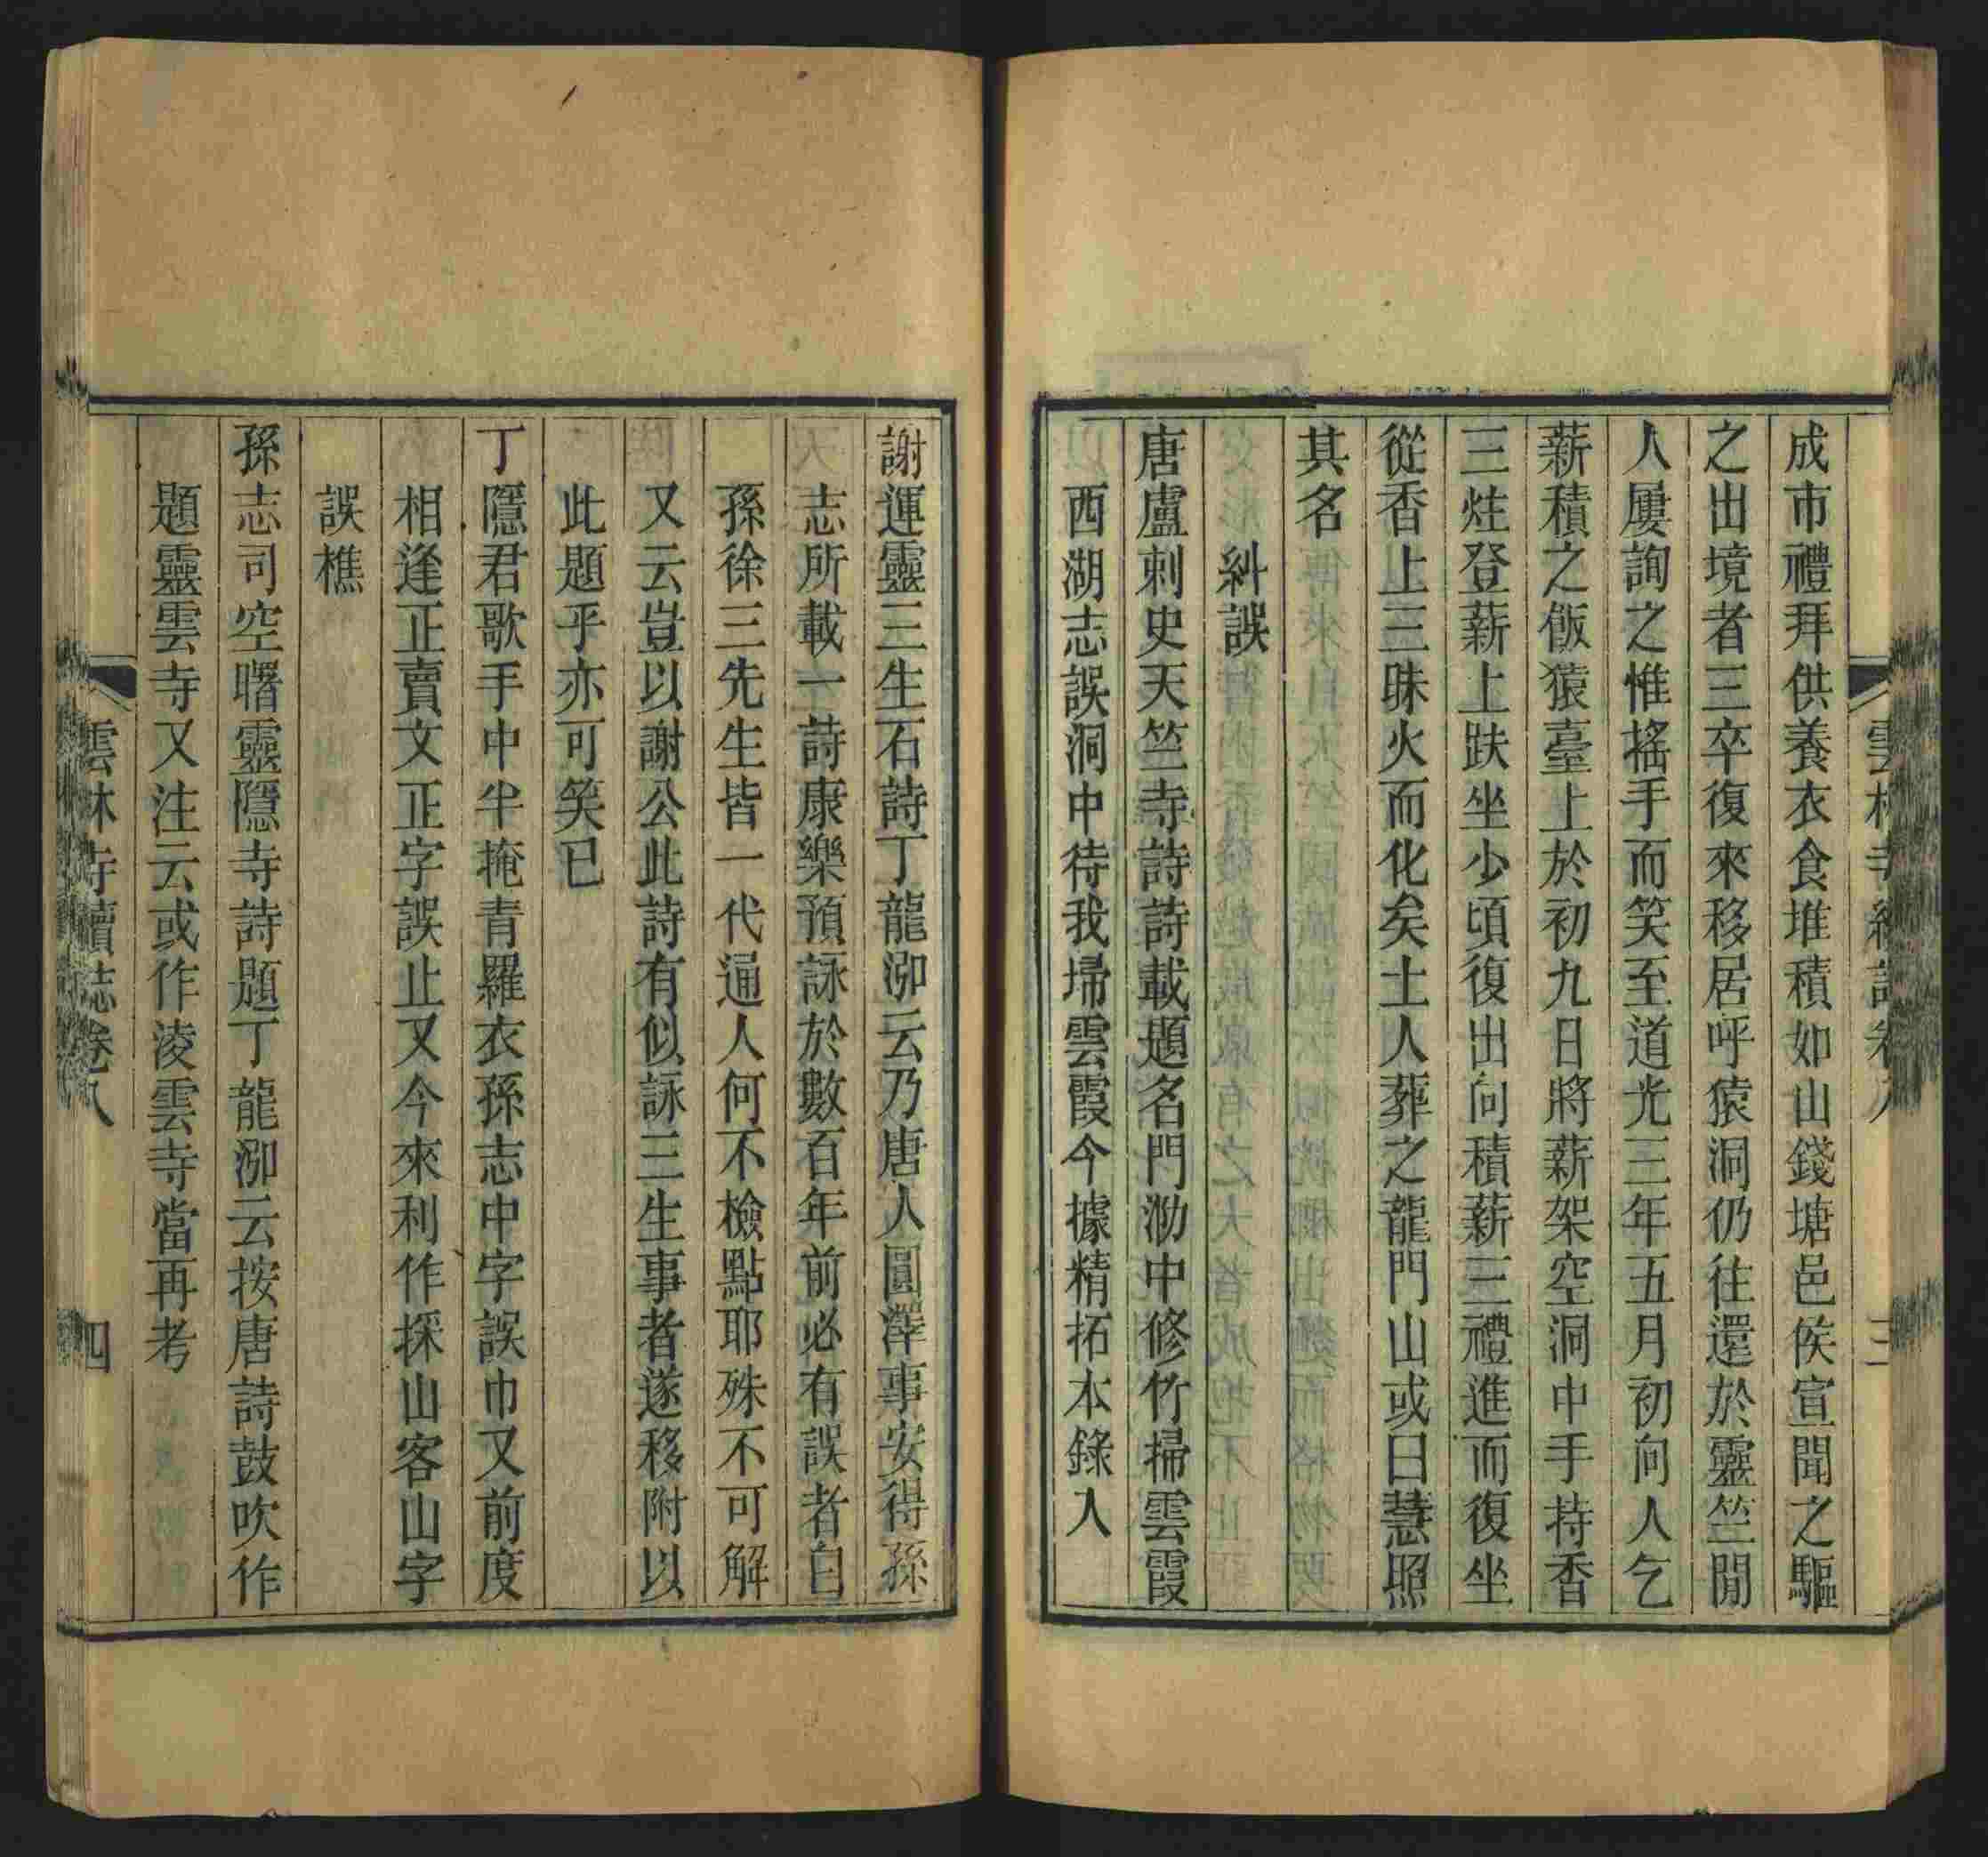 成市禮拜供養衣食堆積如山錢塘邑侯宣聞之驅
之出境者三卒復來移居呼猿洞仍往還於靈竺閒
人屢詢之惟搖手而笑至道光三年五月初向人乞
薪積之飯猿臺上於初九日將薪架空洞中手持香
三炷登薪上趺坐少頃復出向積薪三禮進而復坐
從香上三昧火而化矣土人葬之龍門山或曰慧照
其名
糾誤
唐盧刺史天竺寺詩詩載題名門泐中修竹掃雲霞
西湖志誤洞中待我埽雲霞今據精拓本錄入
雲林寺續誌卷八
三
謝運靈三生石詩丁龍泖云乃唐人圓澤事安得孫
志所載一詩康樂預詠於數百年前必有誤者白
孫徐三先生皆一代通人何不檢點耶殊不可解
又云豈以謝公此詩有似詠三生事者遂移附以
此題乎亦可笑已
丁隱君歌手中半掩青羅衣孫志中字誤巾又前度
相逢正賣文正字誤止又今來利作探山客山字
誤樵
孫志司空曙靈隱寺詩題丁龍泖云按唐詩鼓吹作
題靈雲寺又注云或作淩雲寺當再考
雲林寺續誌卷八
四